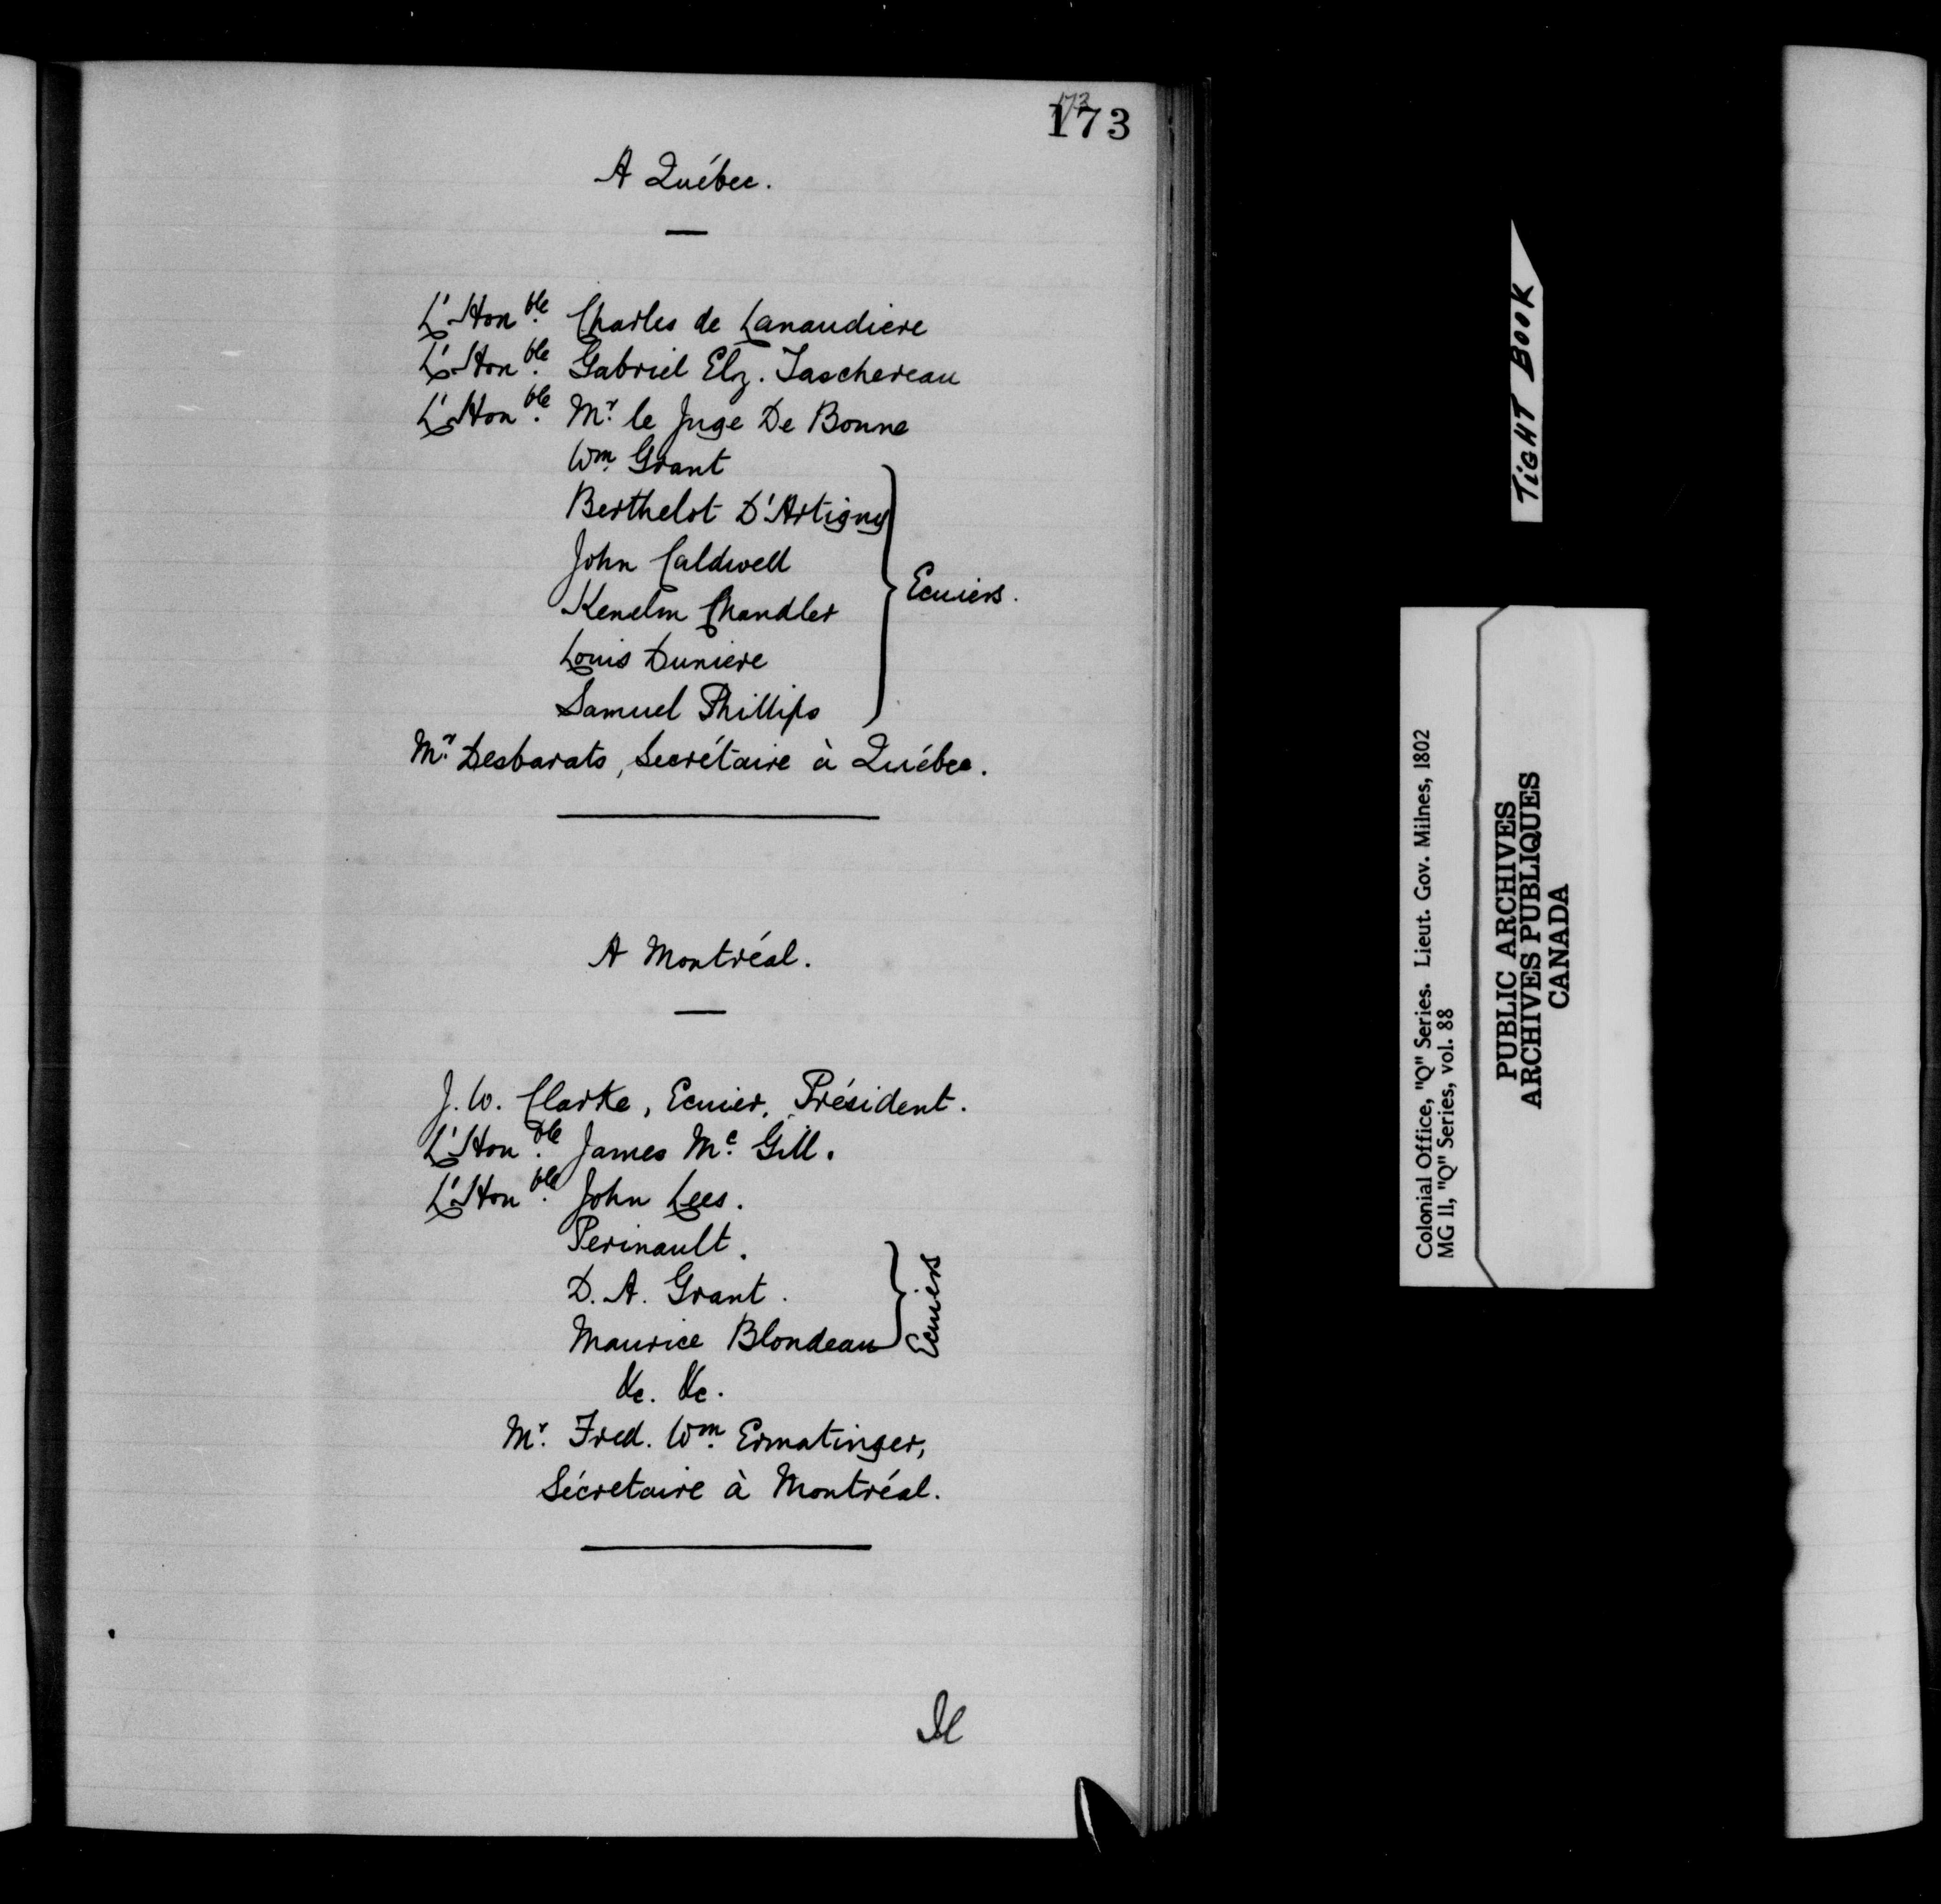 173
173
A Québec.
L'Honble. Charles de Lanaudiere
L'Honble. Gabriel Elz. Taschereau
L'Honble. Mr. le Juge De Bonne
Wm. Grant
Berthelot D'Artigny
John Caldwell
Kenelm Chandler
Louis Duniere
Samuel Phillips
Ecuiers.
Mr. Desbarats, Secrétaire à Québec.
A Montréal.
J. W. Clarke, Ecuier, Président.
L'Honble. James Mc. Gill.
L'Honble. John Lees.
Perinault.
D. A. Grant.
Maurice Blondeau
Ecuiers
&c. &c.
Mr. Fred. Wm. Ermatinger,
Sécretaire à Montréal.
Il
TIGHT BOOK
Colonial Office, "Q" Series. Lieut. Gov. Milnes, 1802
MG 11, "Q" Series, vol. 88
PUBLIC ARCHIVES
ARCHIVES PUBLIQUES
CANADA